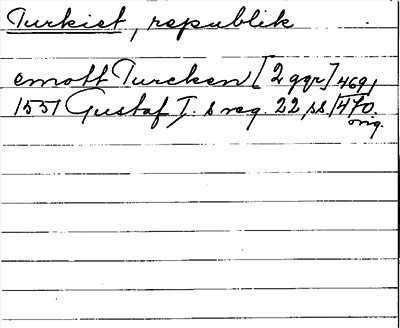 Turkiet, republik
emott Turcken [2 ggr] 469,
1551 Gustaf I:s reg. 22, ss 470.
orig.